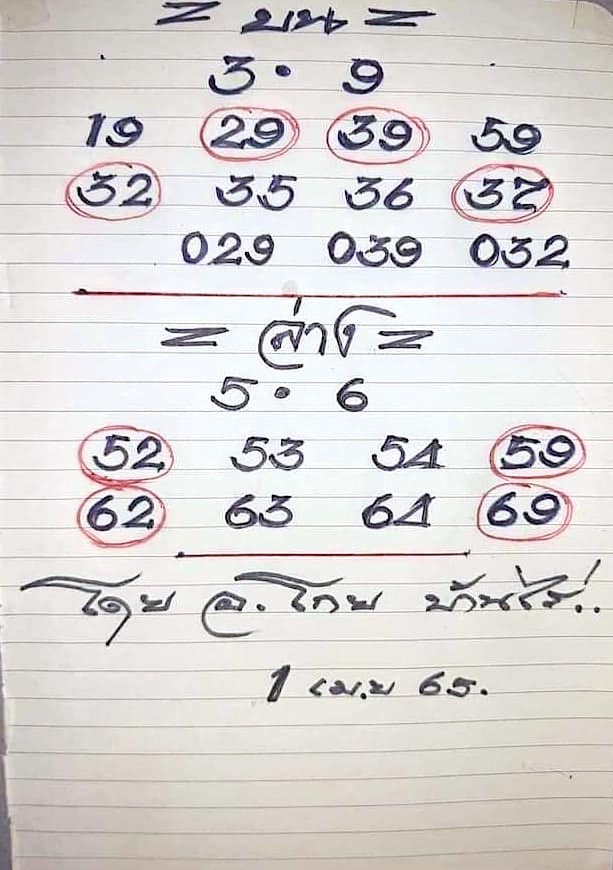 = บน =
3 · 9
19 29 39 59
32 35 36 37
029 039 032
= ล่าง =
5 · 6
52 53 54 59
62 63 64 69
โดย อ. โกย บ้านไร่..
1 เม.ย 65.